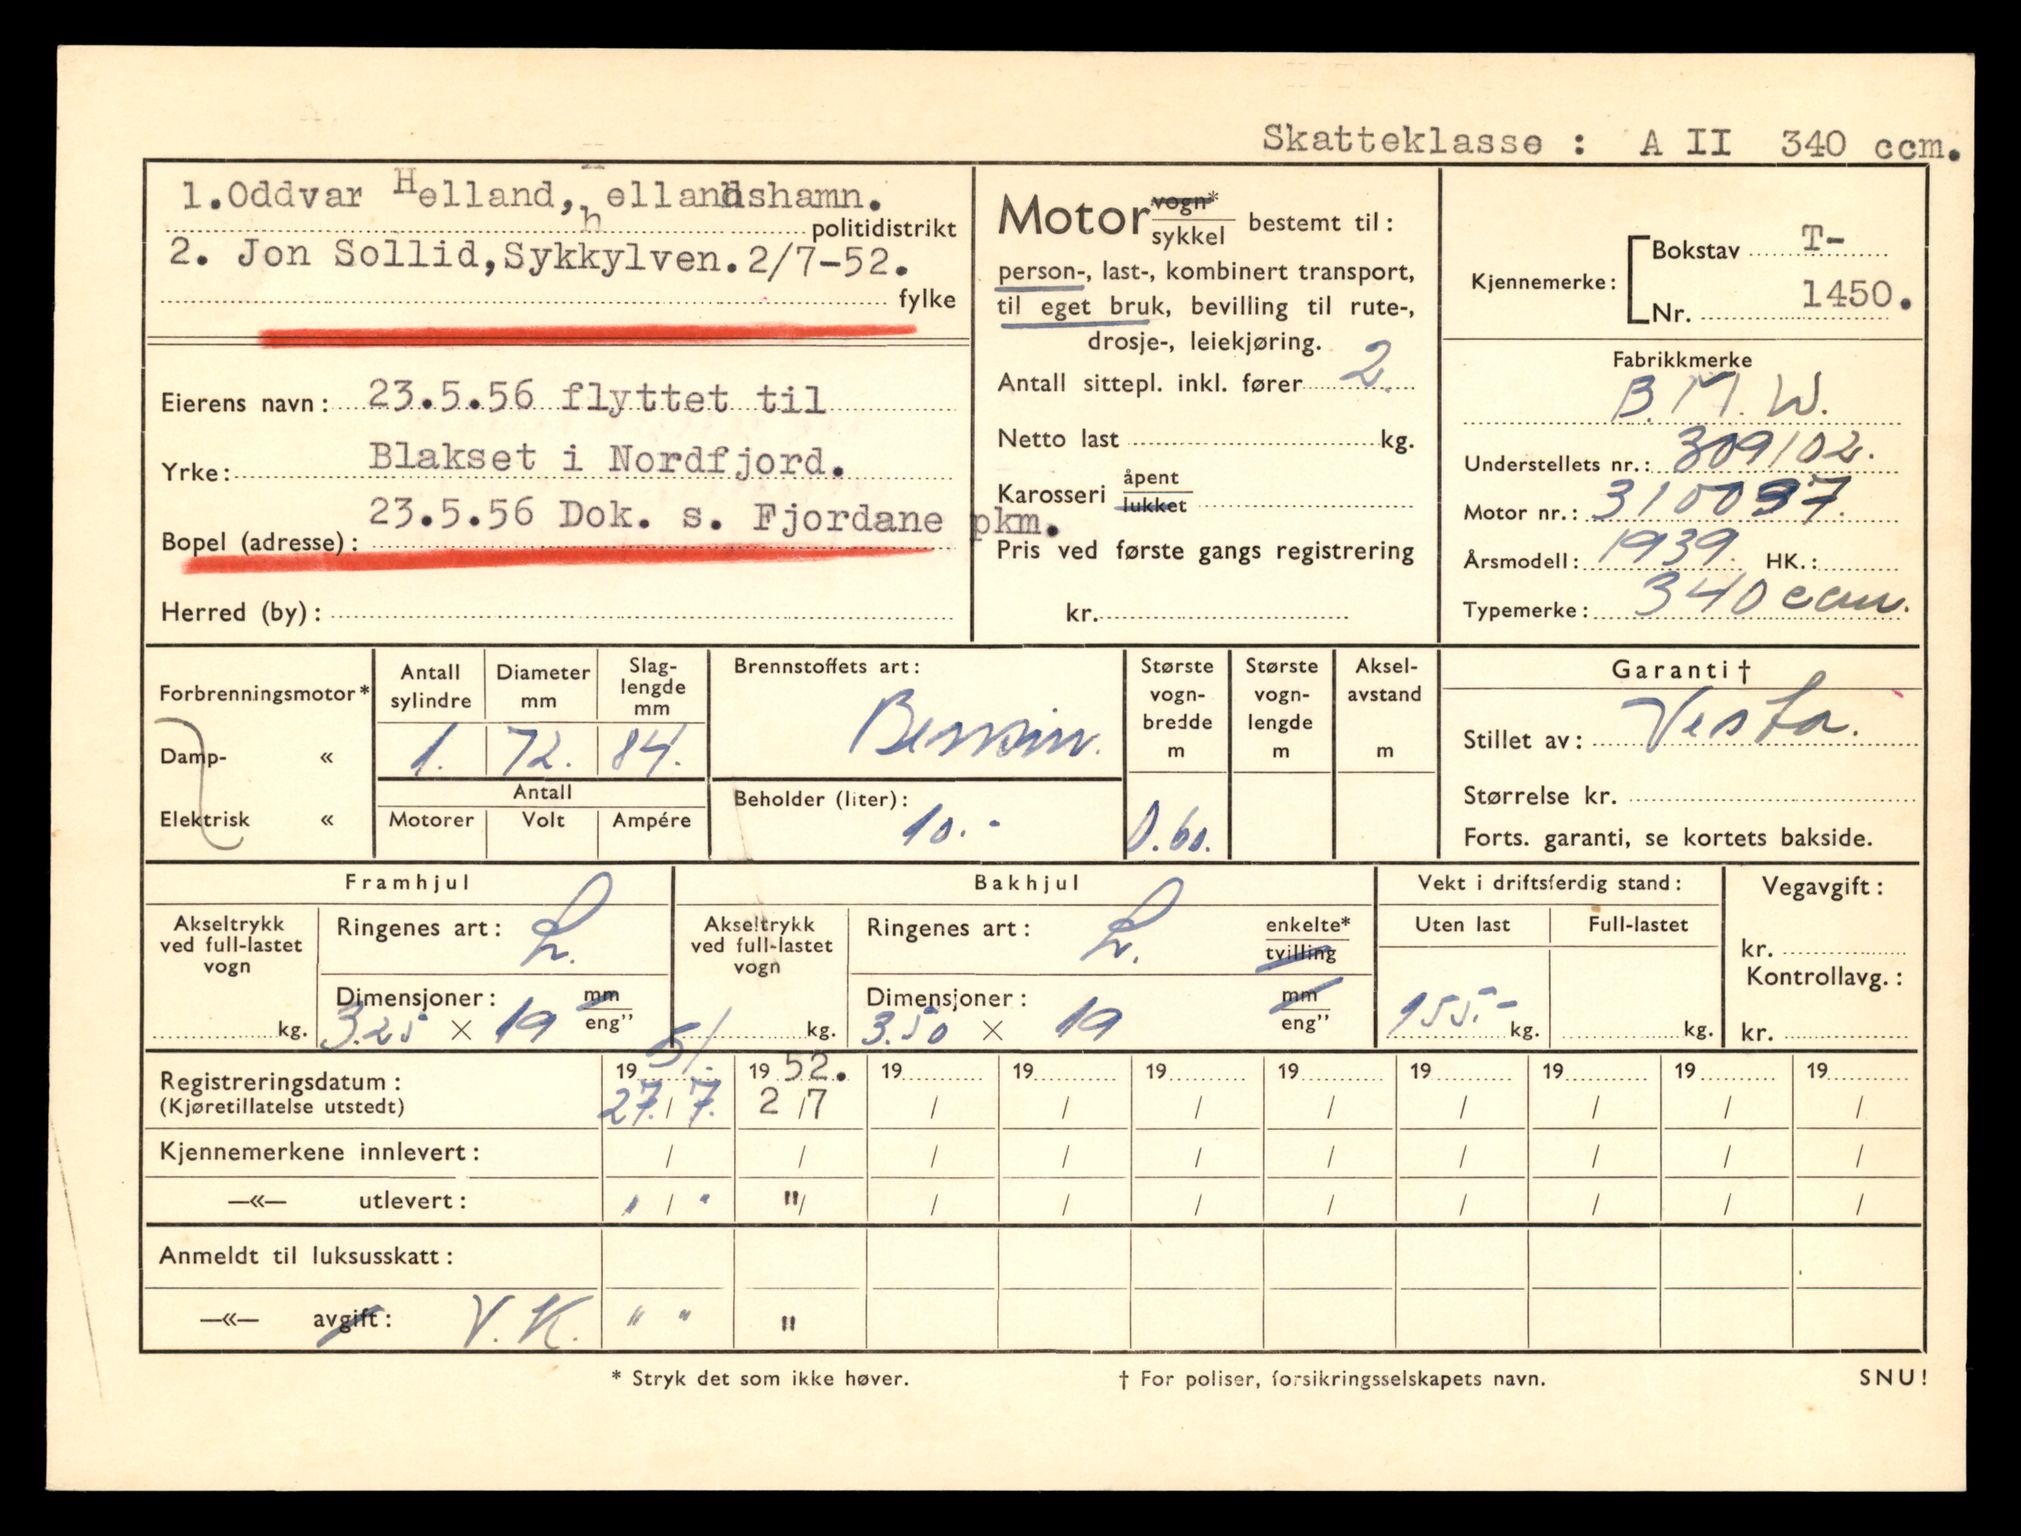 Skatteklasse : A II 340 ccm.
1.Oddvar Helland, hellandshamn.
politidistrikt
2. Jon Sollid,Sykkylven.2/7-52.
fylke
Eierens navn: 23.5.56 flyttet til
Yrke: Blakset i Nordfjord.
Bopel (adresse): 23.5.56 Dok. s. Fjordane pkm.
Herred (by):
Motor vogn* sykkel bestemt til:
person-, last-, kombinert transport,
til eget bruk, bevilling til rute-,
drosje-, leiekjøring.
Antall sittepl. inkl. fører 2
Netto last kg.
Karosseri åpent lukket
Pris ved første gangs registrering
kr.
Kjennemerke: Bokstav T-
Nr. 1450.
Fabrikkmerke
B.M.W.
Understellets nr.: 309102.
Motor nr.: 310037.
Årsmodell: 1939. HK.:
Typemerke: 340 ccm.
Forbrenningsmotor*
Damp- «
Elektrisk «
Antall sylindre
Diameter mm
Slag-lengde mm
1. 72. 84.
Antall
Motorer Volt Ampére
Brennstoffets art:
Bensin.
Beholder (liter):
10.-
Største vogn-bredde m
0.60.
Største vogn-lengde m
Aksel-avstand m
Garanti†
Stillet av: Vesta.
Størrelse kr.
Forts. garanti, se kortets bakside.
Framhjul
Akseltrykk ved full-lastet vogn
kg.
Ringenes art: L.
Dimensjoner: mm
3.25 × 19 eng"
Bakhjul
Akseltrykk ved full-lastet vogn
kg.
Ringenes art: L. enkelte* tvilling
Dimensjoner: mm
3.50 × 19 eng"
Vekt i driftsferdig stand:
Uten last Full-lastet
155.- kg. kg.
Vegavgift:
kr.
Kontrollavg.:
kr.
Registreringsdatum: 19 51. 19 52. 19 19 19 19 19 19 19 19
(Kjøretillatelse utstedt) 27./7. 2/7 / / / / / / / /
Kjennemerkene innlevert: / / / / / / / / / /
—«— utlevert: " / " "/ / / / / / / / /
Anmeldt til luksusskatt:
—«— avgift: V.K. " " "
* Stryk det som ikke høver.
† For poliser, forsikringsselskapets navn.
SNU!